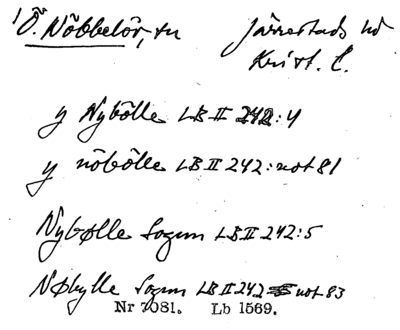 1 Ö. Nöbbelöv, sn Järrestads hd
Krist. l.
y Nybölle LB II 242:4
y nöbölle LB II 242: not 81
Nybølle Sogun LB II 242:5
Nøbylle Sogun LB II 242 not 83
Nr 7081. Lb 1569.